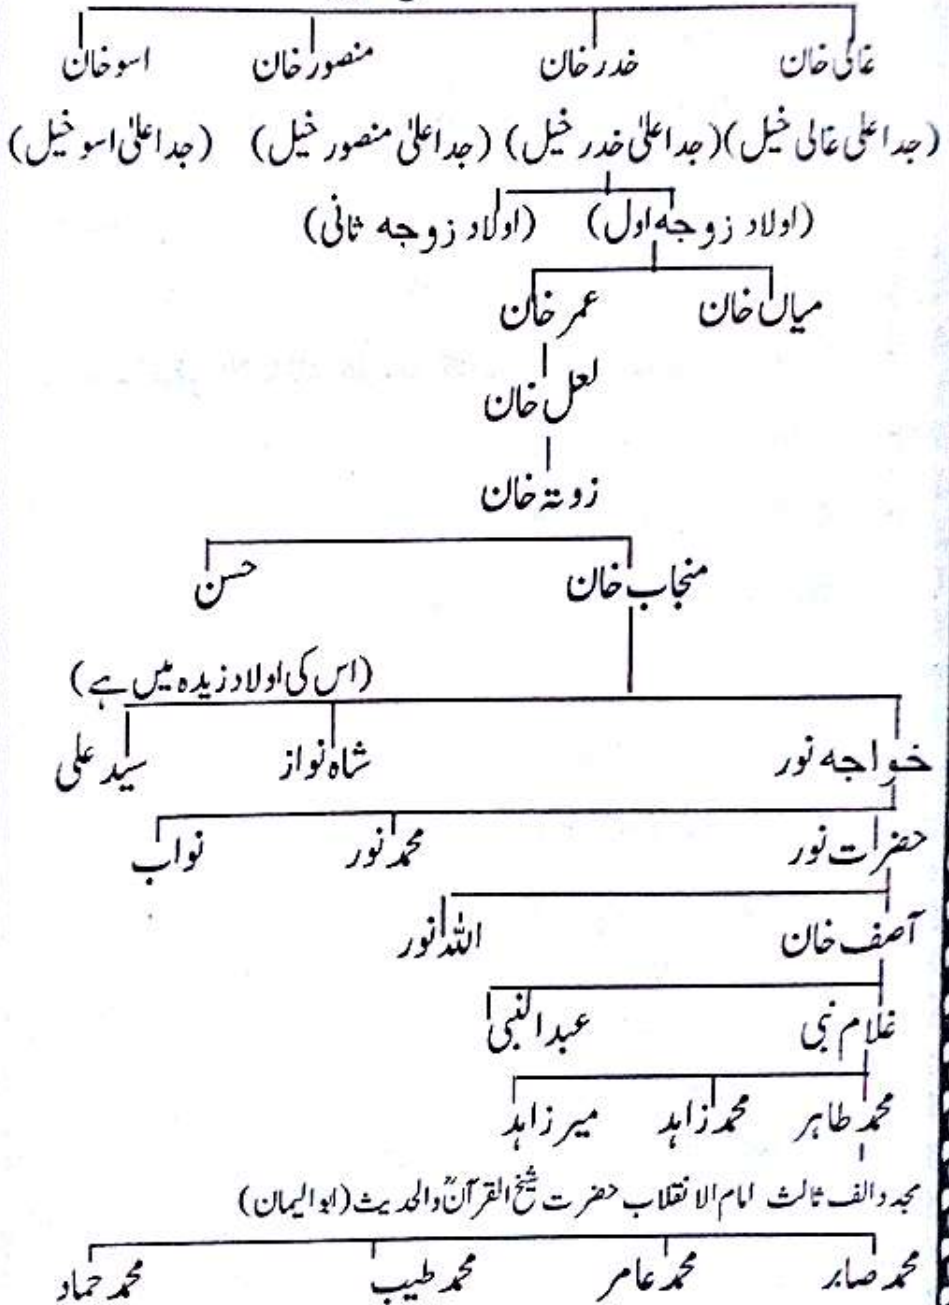 غالی خان خدر خان منصور خان اسو خان
(جد اعلی غالی خیل) (جد اعلیٰ خدر خیل) (جد اعلیٰ منصور خیل) (جد اعلیٰ اسو خیل)
(اولاد زوجہ اول) (اولاد زوجہ ثانی)
میاں خان عمر خان
لعل خان
زوتہ خان
منجاب خان حسن
(اس کی اولاد زیدہ میں ہے)
خواجہ نور شاہ نواز سید علی
حضرات نور محمد نور نواب
آصف خان اللہ نور
غلام نبی عبدالنبی
محمد طاہر محمد زاہد میر زاہد
مجدد الف ثالث امام الانقلاب حضرت شیخ القرآنؒ والحدیث (ابوالیمان)
محمد صابر محمد عامر محمد طیب محمد حماد